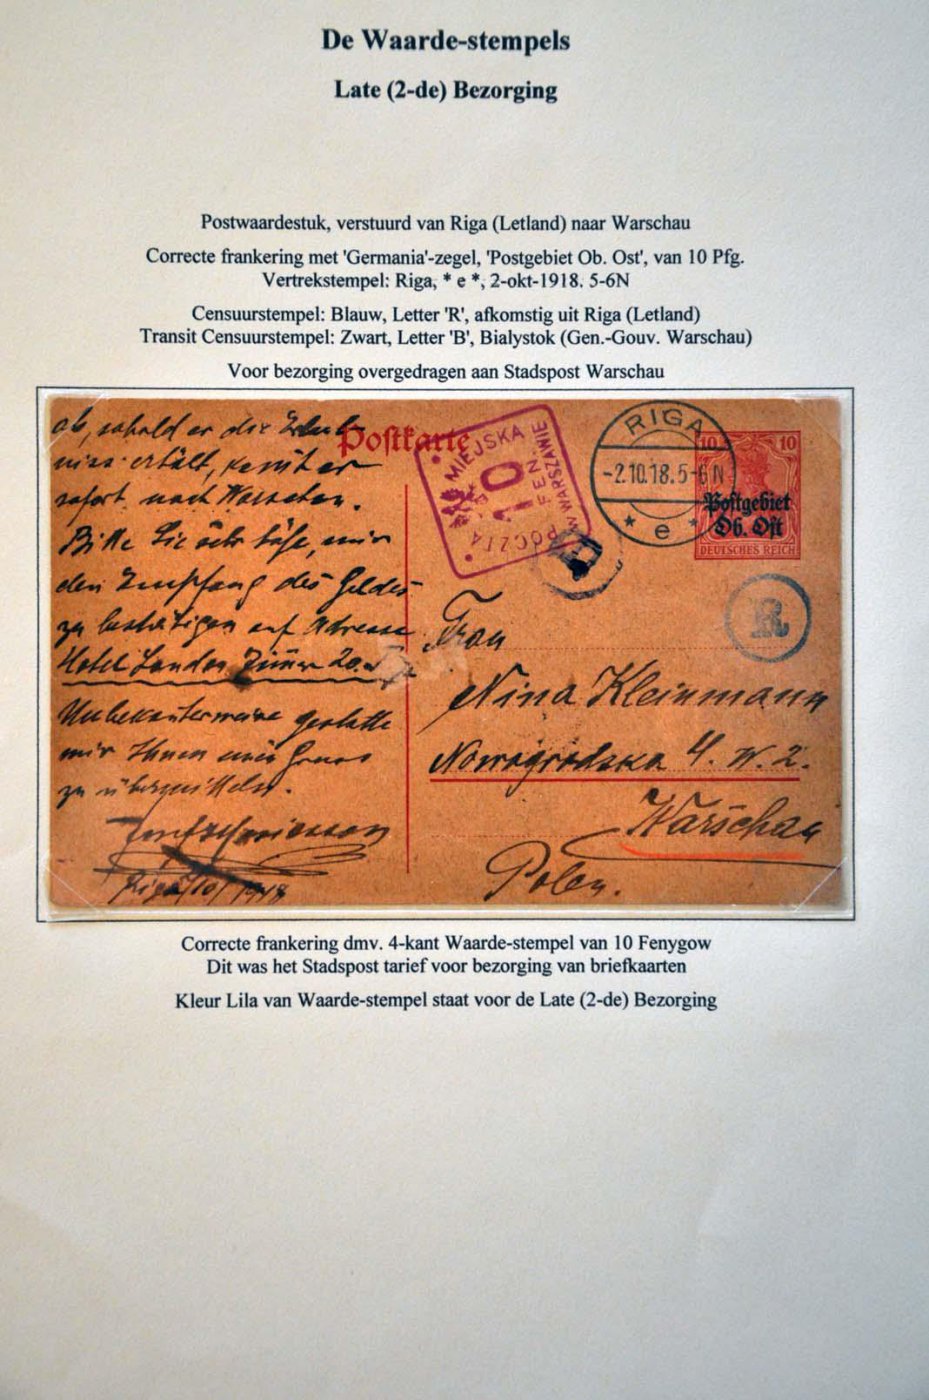 De Waarde-stempels
Late (2-de) Bezorging
Postwaardestuk, verstuurd van Riga (Letland) naar Warschau
Correcte frankering met 'Germania'-zegel, 'Postgebiet Ob. Ost', van 10 Pfg.
Vertrekstempel: Riga, * e *, 2-okt-1918. 5-6N
Censuurstempel: Blauw, Letter 'R', afkomstig uit Riga (Letland)
Transit Censuurstempel: Zwart, Letter 'B', Bialystok (Gen.-Gouv. Warschau)
Voor bezorging overgedragen aan Stadspost Warschau
ab, sobald er die Erlaub
niss erhält, kommt er
sofort nach Warschau.
Bitte Sie sehr höfl, mir
den Empfang des Geldes
zu bestätigen auf Adresse
Hotel London Zimmer 20.
Unbekannterweise gestatte
mir Ihnen einen Gruss
zu übermitteln.
Riga 2/10/1918
Postkarte
POCZTA MIEJSKA
W WARSZAWIE
10
FEN.
RIGA
-2.10.18.5-6N
* e *
10 10
Postgebiet
Ob. Ost
DEUTSCHES REICH
B
R
Frau
Nina Kleinmann
Nowogrodska 4. W. 2.
Warschau
Polen.
Correcte frankering dmv. 4-kant Waarde-stempel van 10 Fenygow
Dit was het Stadspost tarief voor bezorging van briefkaarten
Kleur Lila van Waarde-stempel staat voor de Late (2-de) Bezorging